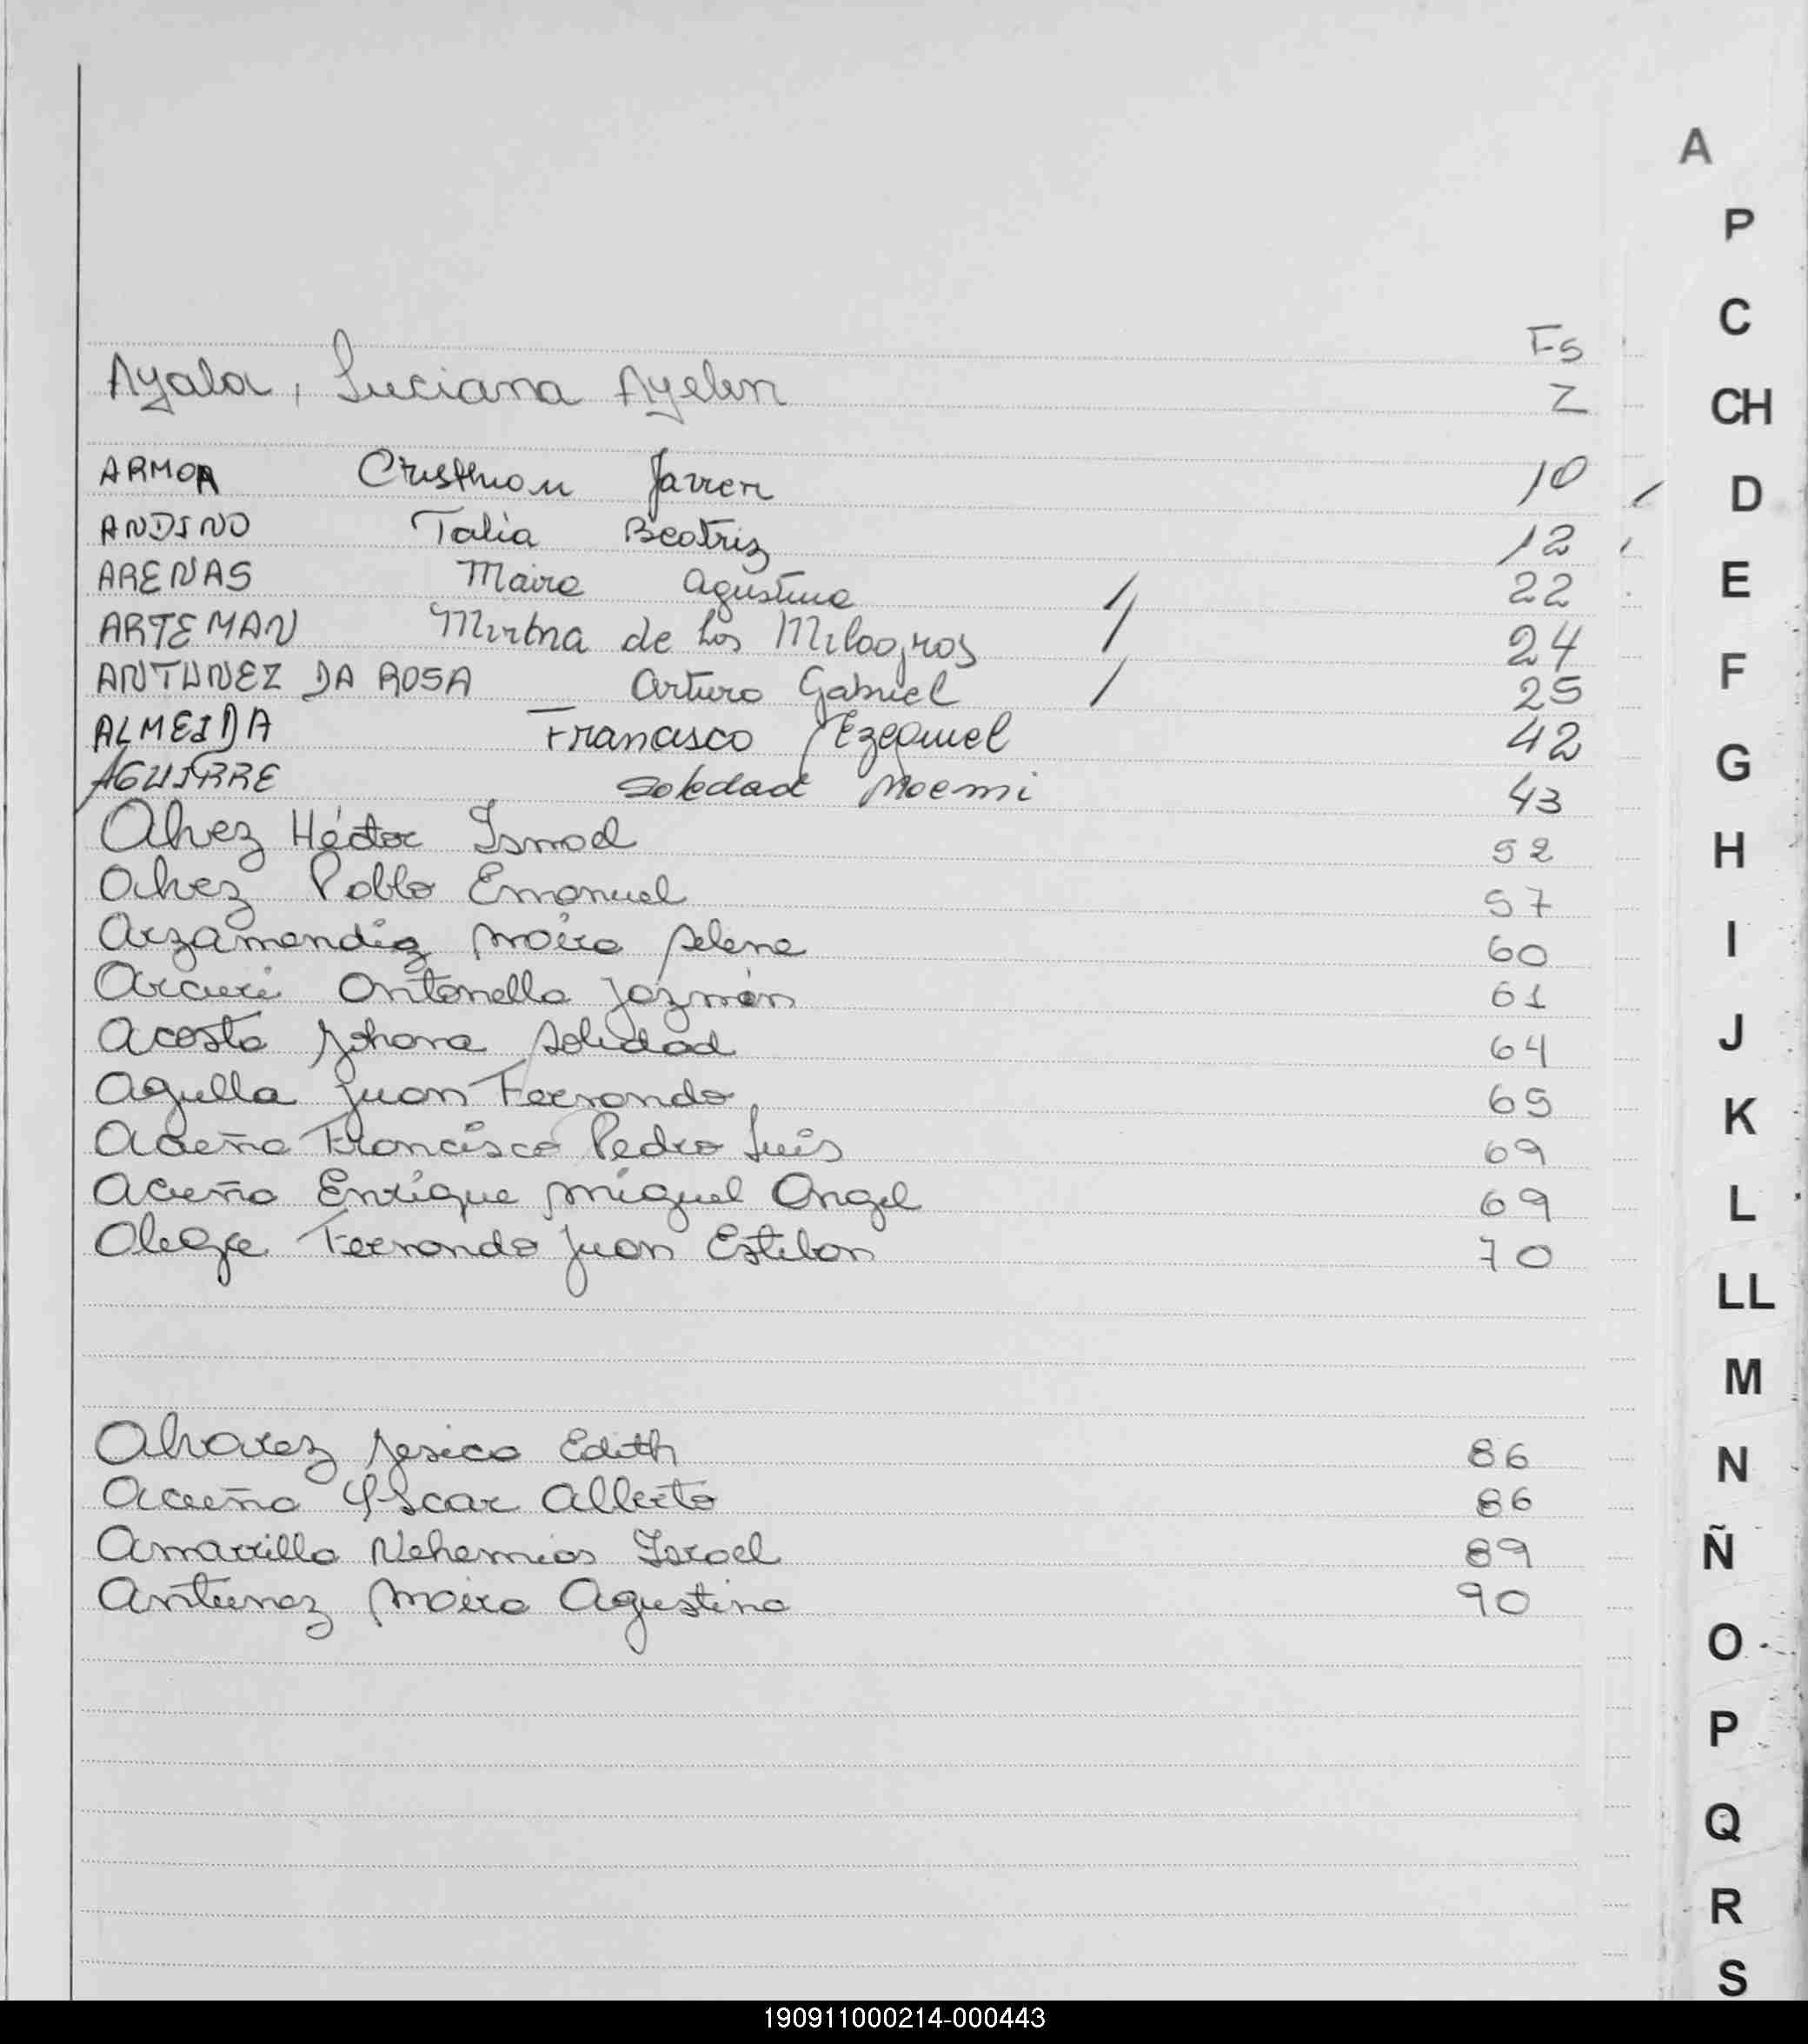 A
P
C
CH
D
E
F
G
H
I
J
K
L
LL
M
N
Ñ
O
P
Q
R
S
Fs
Ayala, Luciana Ayelen 2
ARMOA Cristhian Javier 10
ANDINO Talia Beatriz 12
ARENAS Maira Agustina 22
ARTEMAN Mirtha de los Milagros 24
ANTUNEZ DA ROSA Arturo Gabriel 25
ALMEIDA Francisco Ezequiel 42
AGUIRRE Soledad Noemi 43
Alvez Héctor Ismael 52
Alvez Pablo Emanuel 57
Arzamendia Maira Selene 60
Arcuri Antonella Jazmín 61
Acosta Johana Soledad 64
Agulla Juan Fernando 65
Acuña Francisco Pedro Luis 69
Acuña Enrique Miguel Angel 69
Alegre Fernando Juan Esteban 70
Alvarez Jesica Edith 86
Acuña Oscar Alberto 86
Amarilla Nehemias Israel 89
Antunez Maira Agustina 90
190911000214-000443